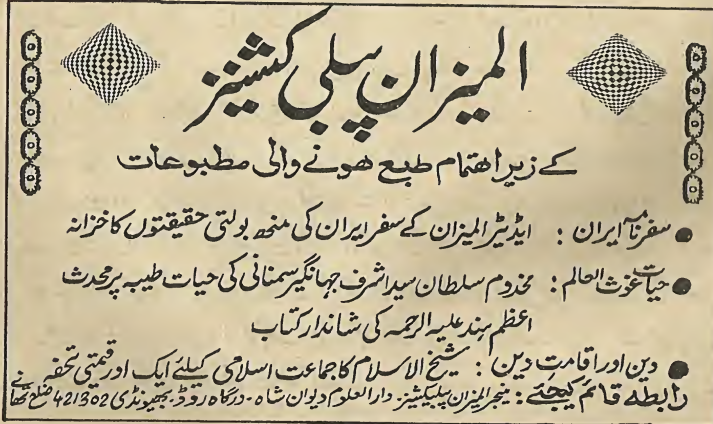 المیزان پبلی کشنیز
کے زیر اھتمام طبع ھونے والی مطبوعات
● سفرنامۂ ایران : ایڈیٹر المیزان کے سفر ایران کی منھ بولتی حقیقتوں کا خزانہ
● حیات غوث العالم : مخدوم سلطان سید اشرف جہانگیر سمنانی کی حیات طیبہ پر محدث
اعظم ہند علیہ الرحمہ کی شاندار کتاب
● دین اور اقامت دین : شیخ الاسلام کا جماعت اسلامی کیلئے ایک اور قیمتی تحفہ
رابطہ قائم کیجئے : منیجر المیزان پبلیکیشنز۔ دارالعلوم دیوان شاہ۔ درگاہ روڈ۔ بھیونڈی 421302 ضلع تھانے